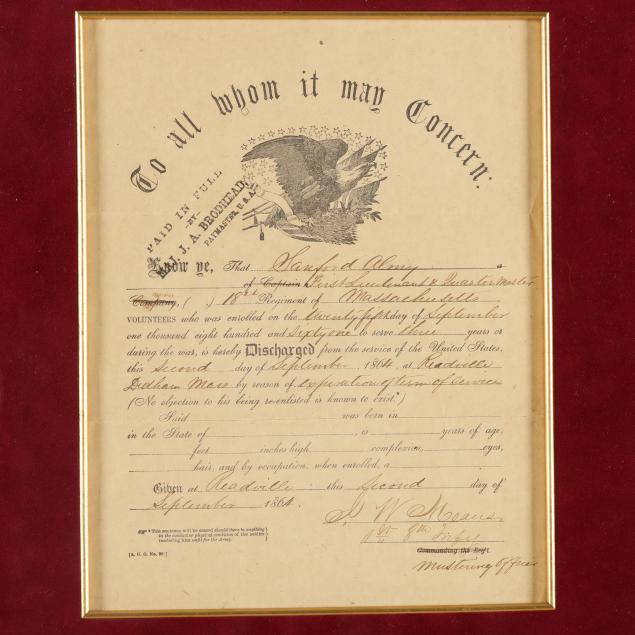 To all whom it may Concern:
PAID IN FULL
-BY-
MAJ. J. A. BRODHEAD,
PAYMASTER, U.S.A.
Know ye, That Sanford Almy a
of Captain First Lieutenant & Quarter Master
Company, ( ) 18th Regiment of Massachusetts
VOLUNTEERS who was enrolled on the twenty fifth day of September
one thousand eight hundred and sixty one to serve three years or
during the war, is hereby Discharged from the service of the United States,
this Second day of September 1864 at Readville
Dedham Mass by reason of expiration of term of service
(No objection to his being re-enlisted is known to exist.*)
Said was born in
in the State of , is years of age,
feet inches high, complexion, eyes,
hair, and by occupation, when enrolled, a
Given at Readville this Second day of
September 1864.
W
1st Lt 8th Infy
Commanding the Reg't.
Mustering Officer
* This sentence will be erased should there be anything
in the conduct or physical condition of the soldier
rendering him unfit for the Army.
[A. G. O. No. 99.]